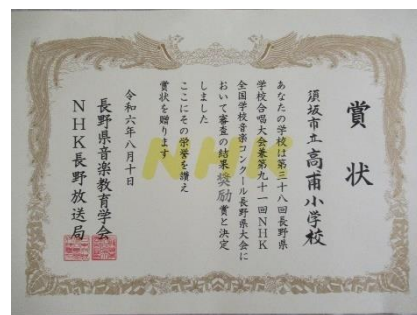 賞状
須坂市立高甫小学校
あなたの学校は第三十八回長野県
学校合唱大会兼第九十一回NHK
全国学校音楽コンクール長野県大会に
おいて審査の結果奨励賞と決定
しました
ここにその栄誉を讃え
賞状を贈ります
令和六年八月十日
長野県音楽教育学会
NHK長野放送局
NHK